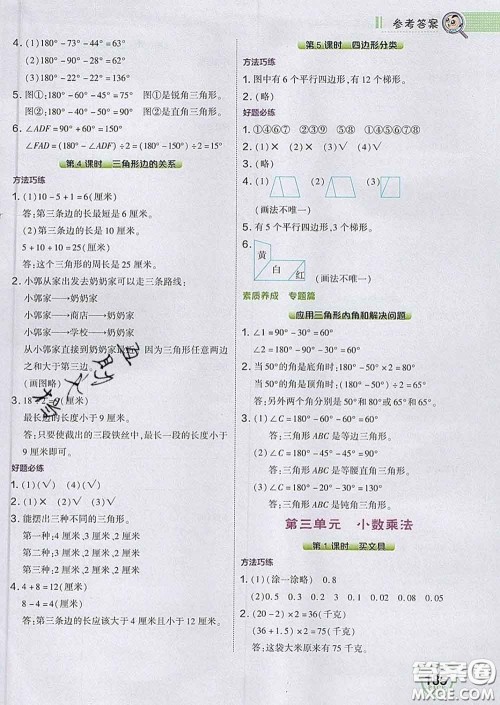 参考答案
4. (1)180°-73°-44°=63°
(2)180°-90°-58°=32°
5. 图①:180°-60°-45°=75° 图①是锐角三角形。
图②:180°-50°-40°=90° 图②是直角三角形。
6. ∠ADF=90°+60°=150°
∠FAD=(180°-∠ADF)÷2=(180°-150°)÷2=15°
第4课时 三角形边的关系
方法巧练
1. (1)10-5+1=6(厘米)
答:第三条边的长最短是6厘米。
(2)第三条边的长是10厘米。
5+10+10=25(厘米)
答:这个三角形的周长是25厘米。
2. 小郭从家出发去奶奶家可以走三条路线:
小郭家→奶奶家
小郭家→商店→奶奶家
小郭家→学校→奶奶家
从小郭家直接到奶奶家最近,因为三角形任意两边
之和大于第三边。
(画图略)
3. 18÷2=9(厘米)
最长边的长度小于9厘米。
答:只要使截出的三段铁丝中,最长一段的长度小于
9厘米即可。
好题必练
1. (1)(2)(4)(√)
2. (1)√ (2)× (3)√
3. 能摆出三种不同的三角形。
第一种:4厘米,3厘米,2厘米
第二种:3厘米,3厘米,2厘米
第三种:4厘米,3厘米,3厘米
4. 4+8=12(厘米)
8-4=4(厘米)
答:第三条边的长应该大于4厘米且小于12厘米。
第5课时 四边形分类
方法巧练
1. 图中有6个平行四边形,有12个梯形。
2. (略)
好题必练
1. ①④⑥⑦ ②⑤ ①④⑥
2. (略)
3. (1)× (2)× (3)√ (4)×
4. (1) (2)
(画法不唯一)
5. 有5个平行四边形,3个梯形。
6. 黄 白 红
(画法不唯一)
素质养成 专题篇
应用三角形内角和解决问题
1. ∠1=90°-30°=60°
∠2=90°-60°=30°
2. 当50°的角是顶角时:
(180°-50°)÷2=65°
当50°的角是底角时:
180°-50°-50°=80°
答:另外两个角分别是50°和80°或65°和65°。
3. (1)∠C=180°-60°-60°=60°
答:三角形ABC是等边三角形。
(2)∠C=180°-90°-45°=45°
答:三角形ABC是等腰直角三角形。
(3)∠C=180°-30°-30°=120°
答:三角形ABC是钝角三角形。
第三单元 小数乘法
第1课时 买文具
方法巧练
1. (1)(涂一涂略) 0.8
(2)0.5 0.3 0.2 1.8 0.21 0.32
2. (20-2)×2=36(千克)
(36+1.5)×2=75(千克)
答:这袋大米原来有75千克。
答案圈
MXQE.COM